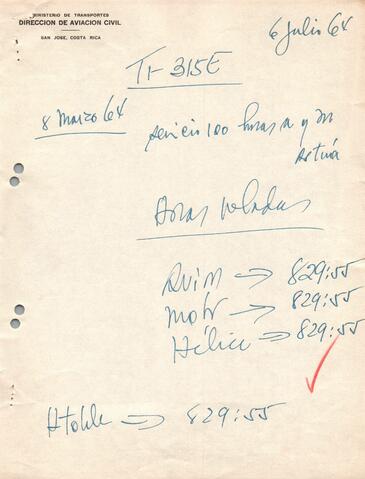 MINISTERIO DE TRANSPORTES
DIRECCION DE AVIACION CIVIL
SAN JOSE, COSTA RICA
6 Julio 64
TI-315E
8 Marzo 64
servicio 100 horas a y m
Horas voladas
Avión → 829:55
motor → 829:55
Hélice → 829:55
→ 829:55